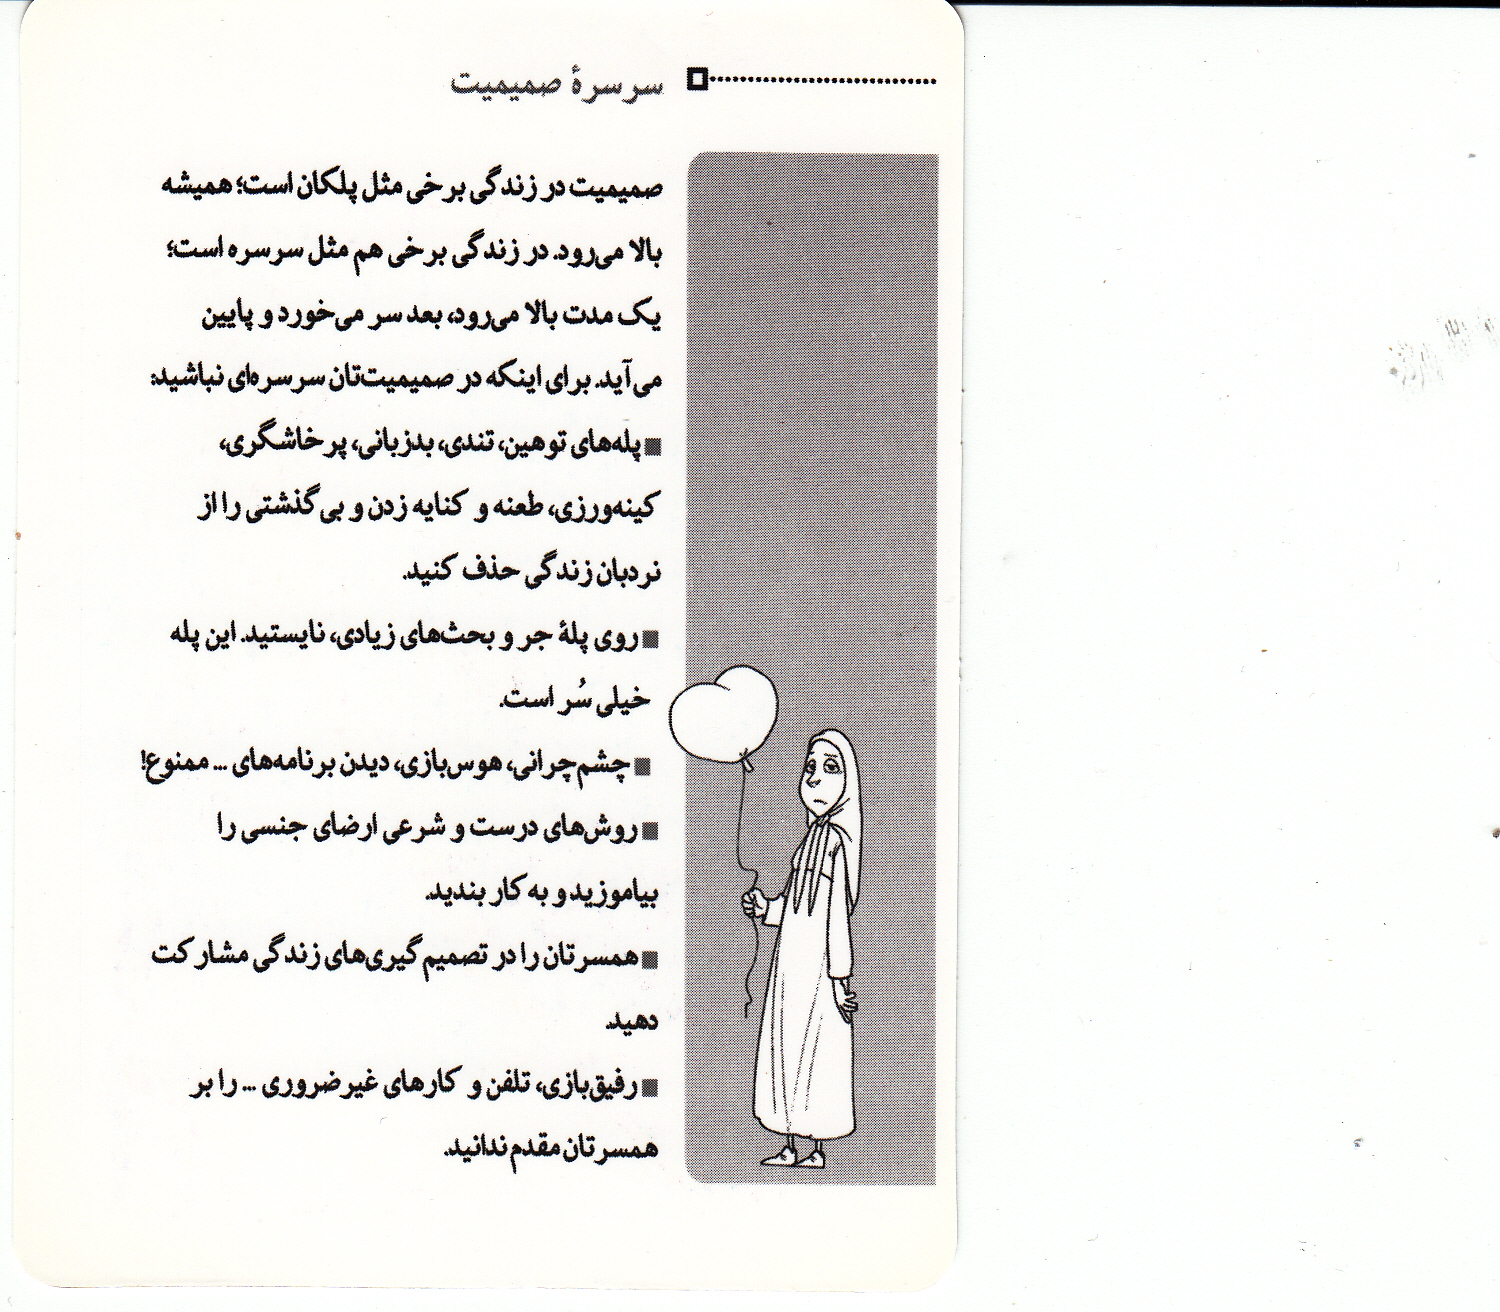 سرسرهٔ صمیمیت
صمیمیت در زندگی برخی مثل پلکان است؛ همیشه
بالا می‌رود. در زندگی برخی هم مثل سرسره است؛
یک مدت بالا می‌رود، بعد سر می‌خورد و پایین
می‌آید. برای اینکه در صمیمیت‌تان سرسره‌ای نباشید:
■ پله‌های توهین، تندی، بدزبانی، پرخاشگری،
کینه‌ورزی، طعنه و کنایه زدن و بی‌گذشتی را از
نردبان زندگی حذف کنید.
■ روی پلهٔ جر و بحث‌های زیادی، نایستید. این پله
خیلی سُر است.
■ چشم‌چرانی، هوس‌بازی، دیدن برنامه‌های ... ممنوع!
■ روش‌های درست و شرعی ارضای جنسی را
بیاموزید و به کار بندید.
■ همسرتان را در تصمیم‌گیری‌های زندگی مشارکت
دهید.
■ رفیق‌بازی، تلفن و کارهای غیرضروری ... را بر
همسرتان مقدم ندانید.